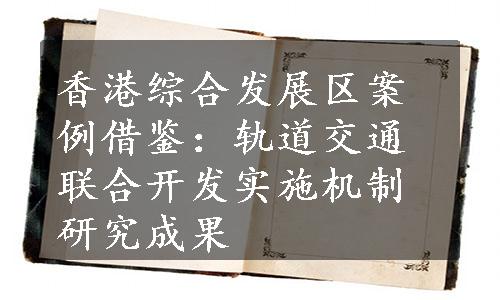 香港综合发展区案
例借鉴：轨道交通
联合开发实施机制
研究成果